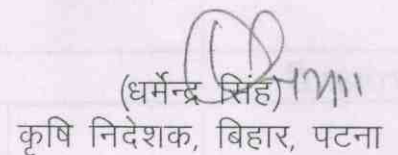 (धर्मेन्द्र सिंह)
कृषि निदेशक, बिहार, पटना